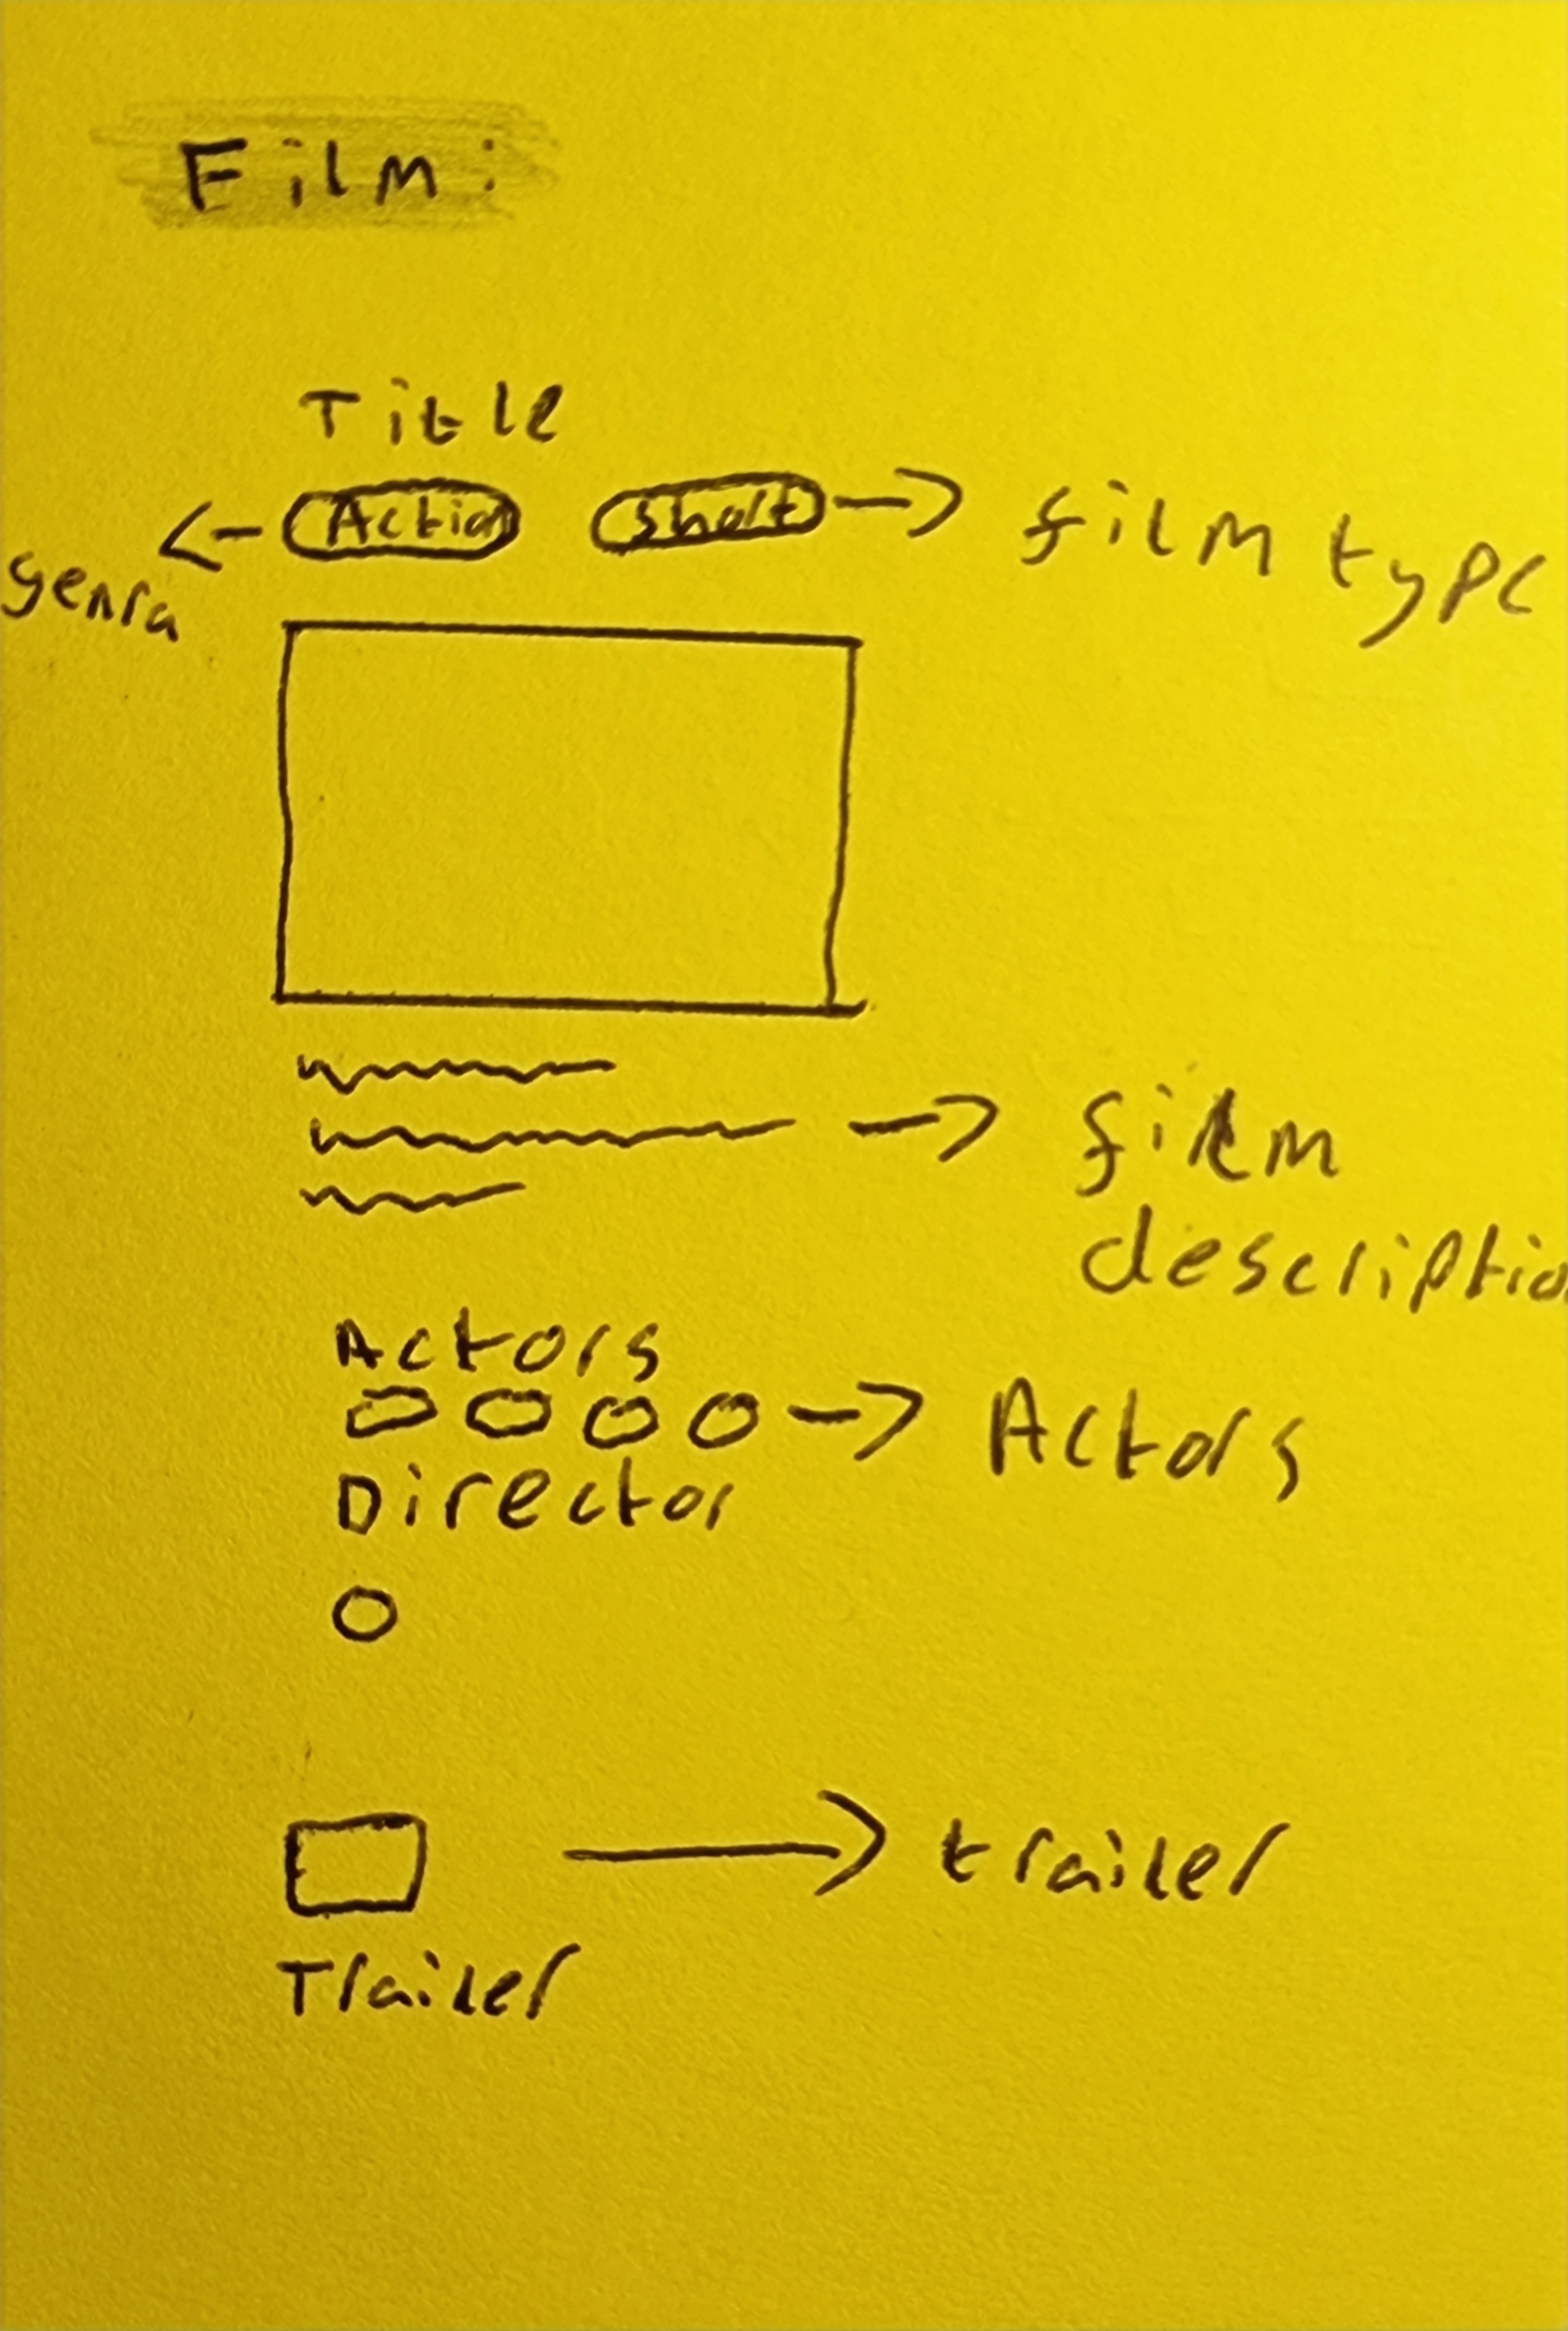 Film:
Title
Action Short film type
genra
film
description
Actors
Actors
Director
trailer
Trailer